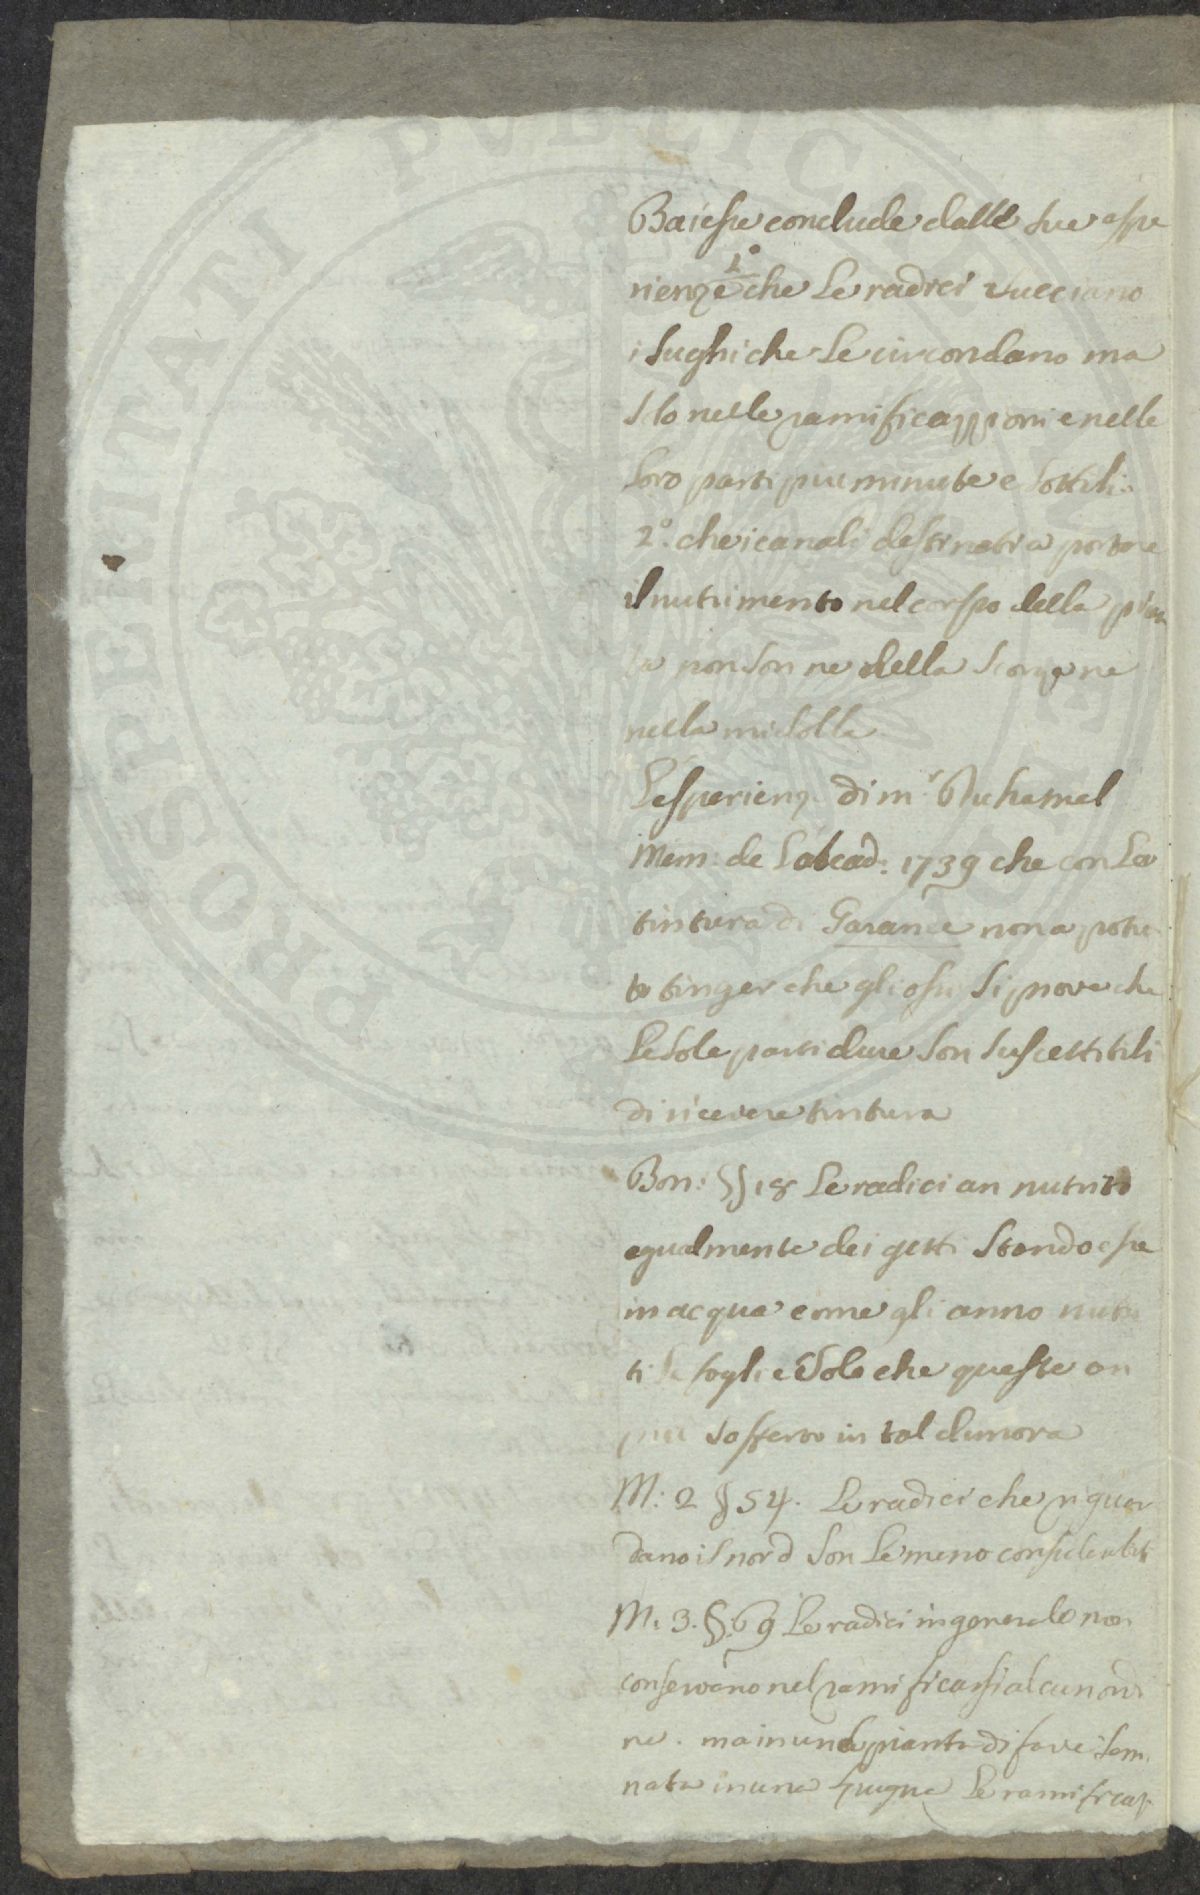 Baiesse conclude dalle sue espe
rienze 1° che le radici succiano
i sughi che le circondano ma
slo nelle ramificazzioni e nelle
loro parti piu minute e sottili.
2°. che i canali destinati a portare
il nutrimento nel corpo della pian
ta non son ne della scorza ne
nella midolla
L'esperienz. di m.r Duhamel
Mem: de L'acad: 1739 che con la
tintura di Garance non a potu
to tinger che gli ossi si prova che
le sole parti dure son suscettibili
di ricevere tintura
Bon: §§ 18 Le radici an nutrito
egualmente dei getti stando esse
in acqua come gli anno nutri
ti le foglie solo che queste an
piu sofferto in tal dimora
M: 2 § 54. Le radici che riguar
dano il nord son le meno considerabili
M: 3. §. 69 Le radici in generale non
conservano nel ramificarsi alcun ordi
ne. ma in una pianta di fave semi
nata in una spugna le ramificaz
PROSPERITATI PUBLICAE